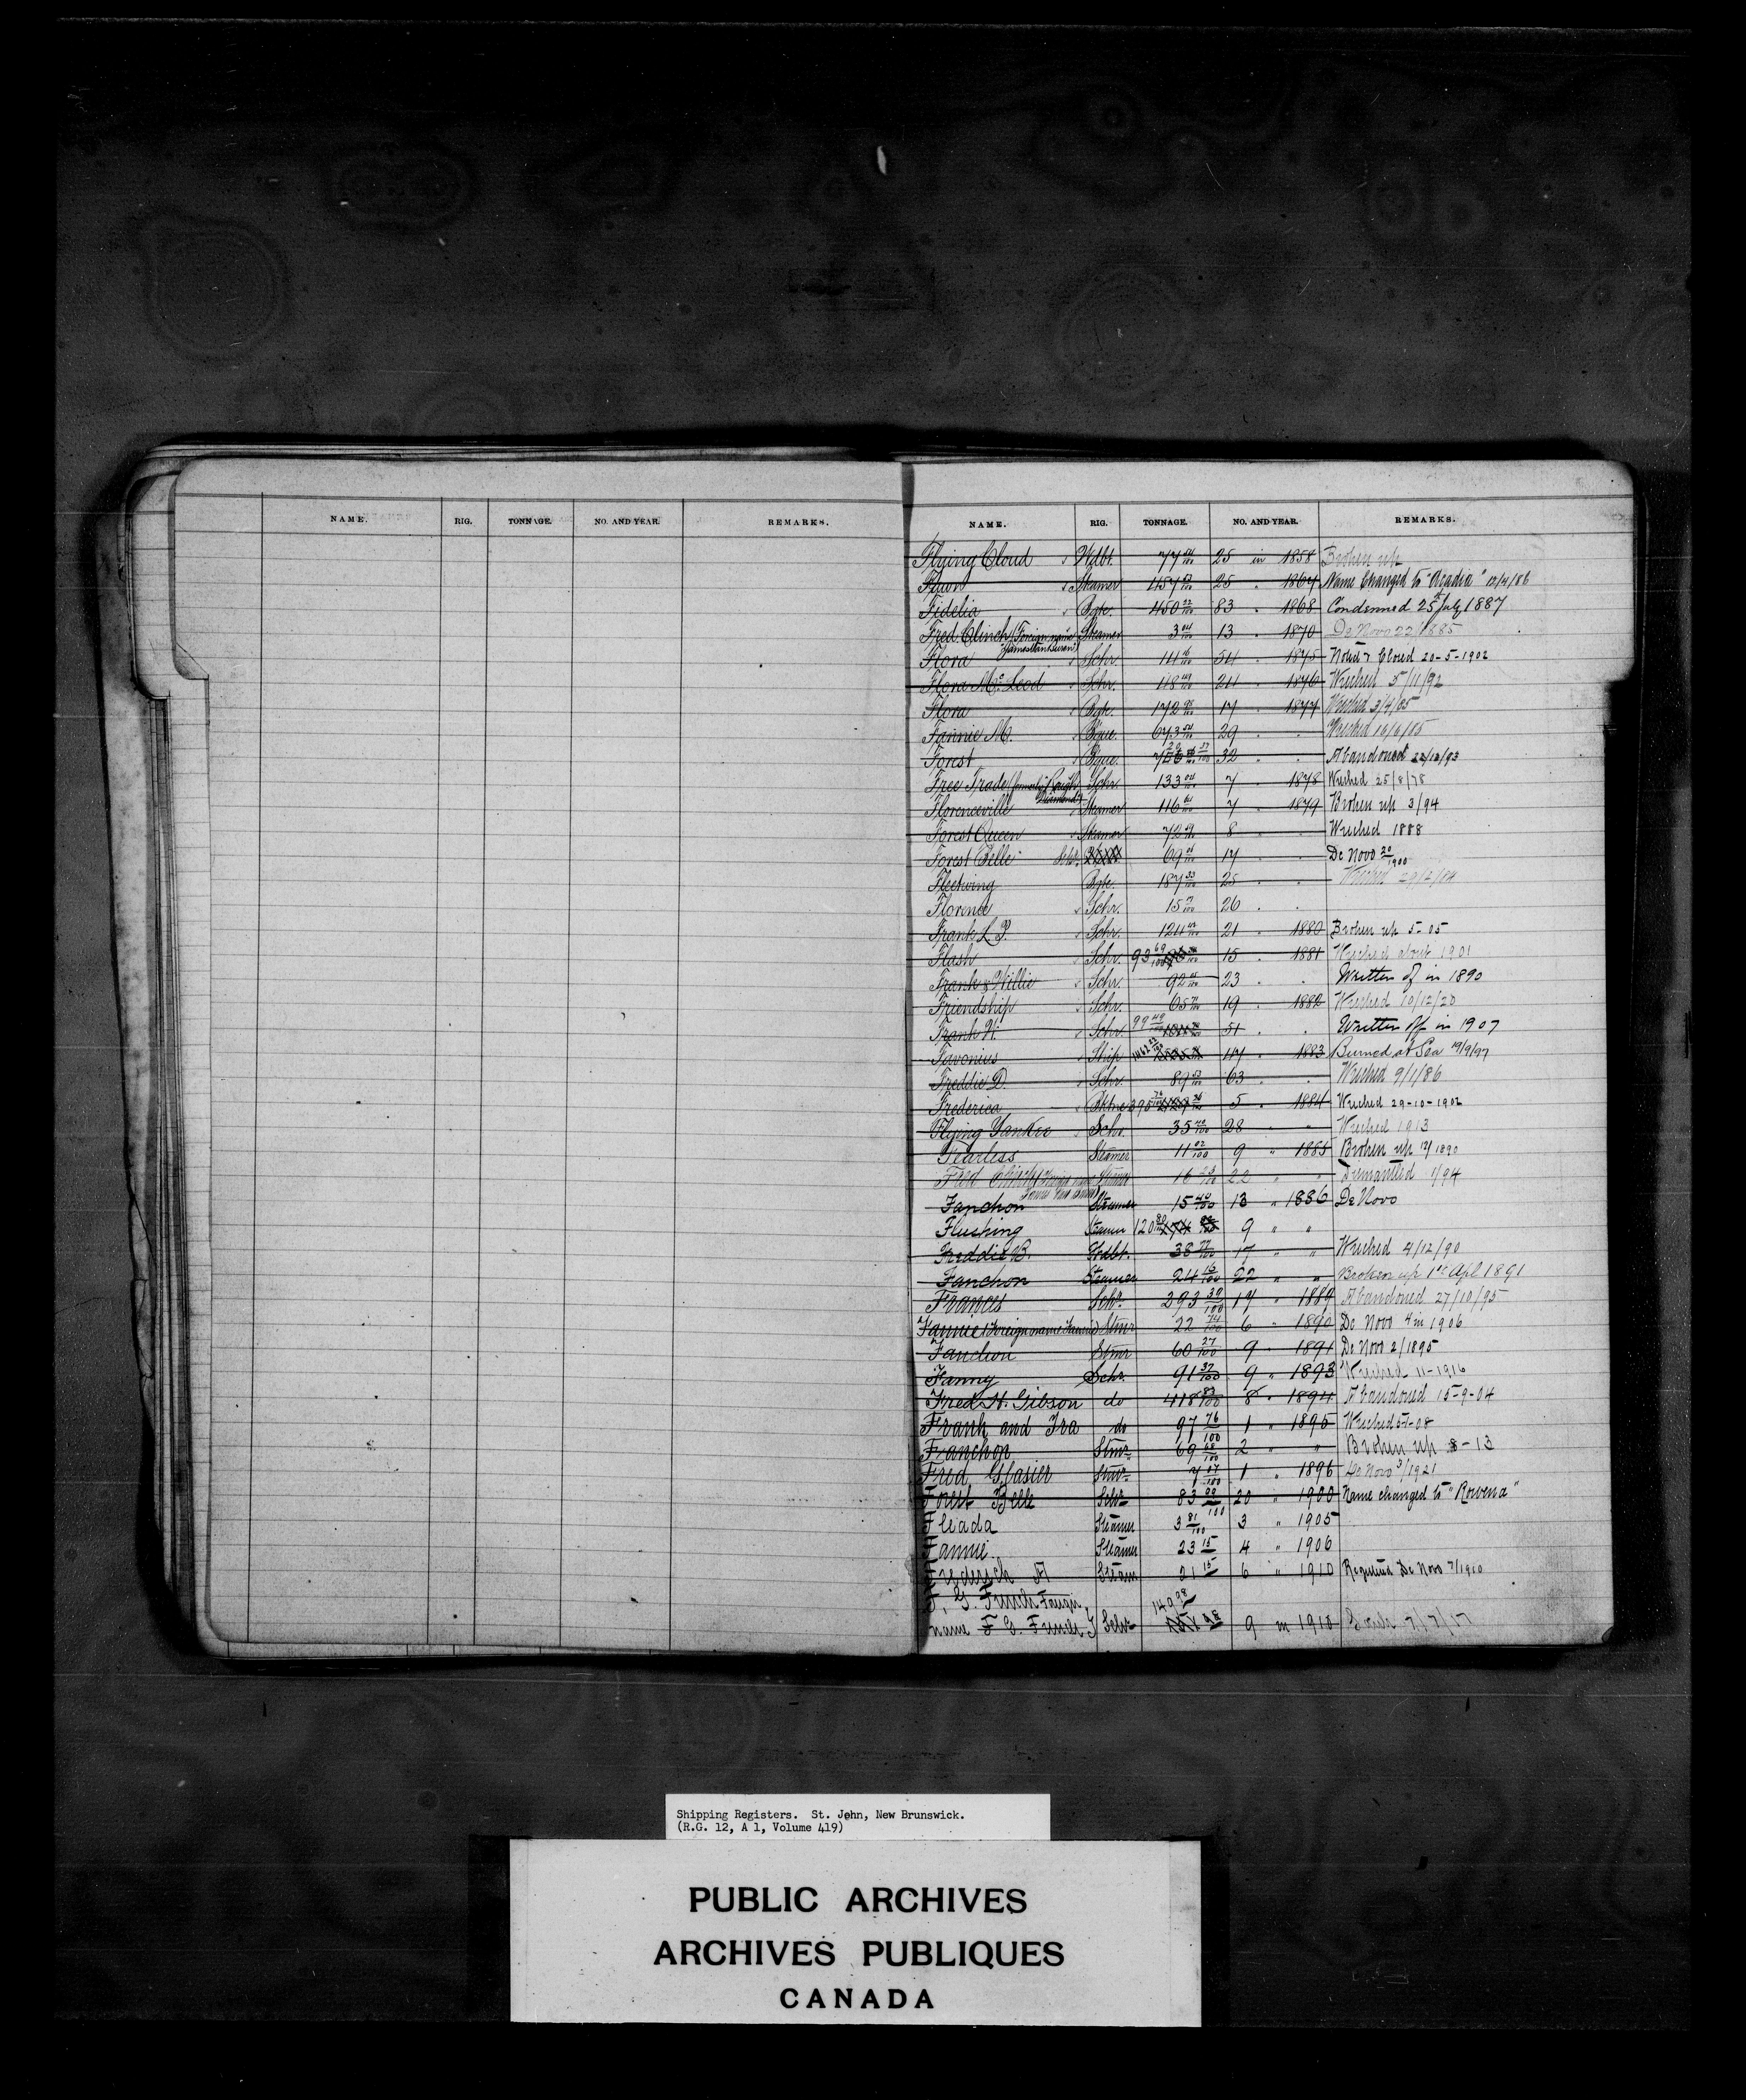 NAME. RIG. TONNAGE. NO. AND YEAR. REMARKS.
NAME. RIG. TONNAGE. NO. AND YEAR. REMARKS.
Flying Cloud Wdbt. 77 04/100 25 in 1858 Broken up
Fawn Steamer 457 25 " 1867 Name Changed to "Acadia" 12/4/86
Fidelia Bgte. 450 22/100 83 " 1868 Condemned 25th July 1887
Fred. Clinch (Foreign name Steamer 3 04/100 13 " 1870 De Novo 22/1885
James Van Buren)
Flora Schr. 111 16/100 54 " 1875 Noted & Closed 20-5-1902
Flora McLeod Schr. 118 49/100 24 " 1876 Wrecked 5/11/92
Flora Bgte. 172 98/100 17 " 1877 Wrecked 3/4/85
Fannie M. Bque. 673 04/100 29 " " Wrecked 16/6/85
Forest Bque. 32 " " Abandoned 22/12/93
Free Trade (formerly "Rough Schr. 133 04 7 " 1878 Wrecked 25/8/78
Diamond")
Florenceville Steamer 116 61/100 7 " 1879 Broken up 3/94
Forest Queen Steamer 72 8 " " Wrecked 1888
Forest Belle Schr. 69 17 " " De Novo 20/1900
Fleetwing Bgte. 187 33/100 25 " " Wrecked 29/12/84
Florence Schr. 15 26 " "
Frank L. P. Schr. 124 21 " 1880 Broken up 5-05
Flash Schr. 93 69/100 15 " 1881 Wrecked about 1901
Frank & Willie Schr. 92 23 " " Written of in 1890
Friendship Schr. 65 19 " 1882 Wrecked 10/12/20
Frank W. Schr. 99 49/100 51 " " Written off in 1907
Favonius Ship 1462 47 " 1883 Burned at Sea 19/9/97
Freddie D. Schr. 89 63 " " Wrecked 9/1/86
Frederica Bktne 395 5 " 1884 Wrecked 29-10-1902
Flying Yankee Schr. 35 40/100 28 " " Wrecked 1913
Fearless Steamer 11 02/100 9 " 1885 Broken up 12/1890
Fred Clinch (Foreign name Steamer 16 23/100 22 " " Dismantled 1/94
James Van Buren)
Fanchon Steamer 15 40/100 13 " 1886 De Novo
Flushing Steamer 120 80/100 9 " "
Freddie B. Wdbt. 38 17 " " Wrecked 4/12/90
Fanchon Steamer 24 16/100 22 " " Broken up 1st Apl 1891
Frances Schr. 293 30/100 14 " 1889 Abandoned 27/10/95
Fannie (Foreign name Fannie) Stmr 22 74/100 6 " 1890 De Novo 4 in 1906
Fanchon Stmr 60 27/100 9 " 1891 De Novo 2/1895
Fanny Schr. 91 37/100 9 " 1893 Wrecked 11-1916
Fred H. Gibson do 418 83/100 8 " 1894 Abandoned 15-9-04
Frank and Ira do 97 76/100 1 " 1895 Wrecked 5-1-08
Fanchon Stmr 69 68/100 2 " " Broken up 8-13
Fred Glasier Stmr 7 07/100 1 " 1896 De Novo 3/1921
Forest Belle Schr 83 09/100 20 " 1900 Name changed to "Rowena"
Fleada Steamer 3 81/100 3 " 1905
Fannie Steamer 23 15 4 " 1906
Frederick A Steam 21 15 6 " 1910 Registered De Novo 7/1910
F. G. French Foreign
name F G. French } Schr 149 98 9 in 1910 7/7/17
Shipping Registers. St. John, New Brunswick.
(R.G. 12, A 1, Volume 419)
PUBLIC ARCHIVES
ARCHIVES PUBLIQUES
CANADA